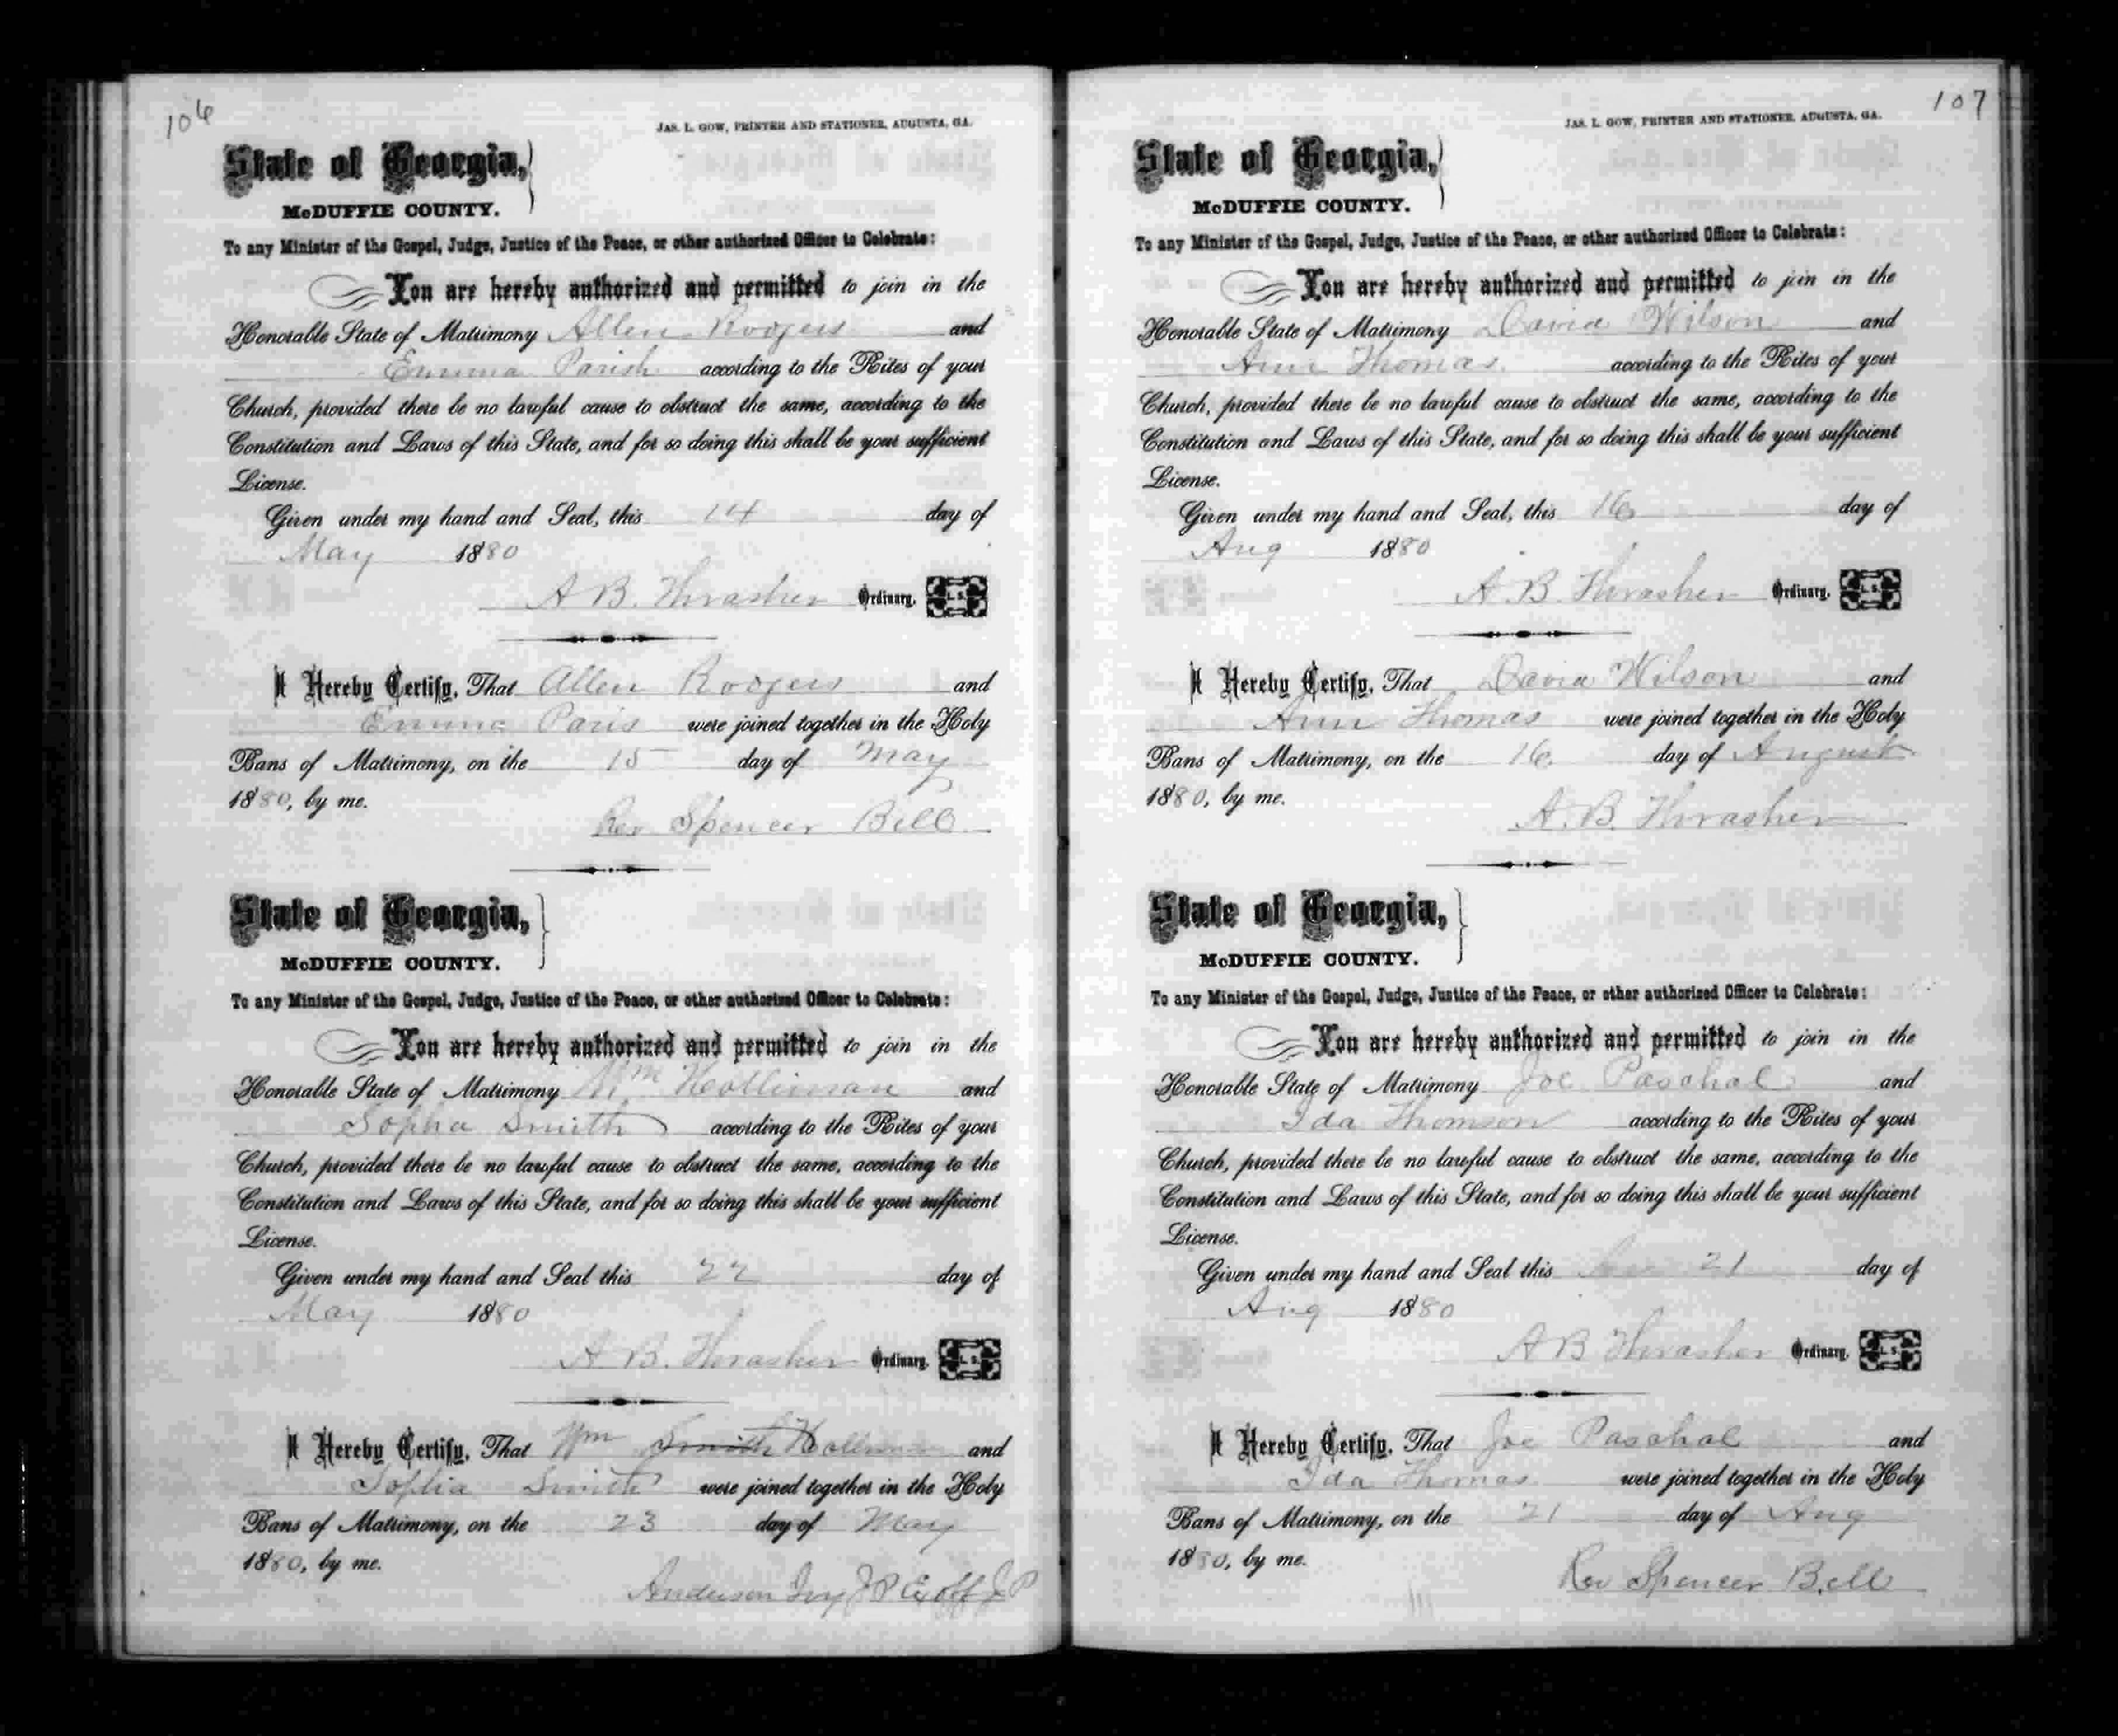 106
JAS. L. GOW, PRINTER AND STATIONER, AUGUSTA, GA.
State of Georgia,
McDUFFIE COUNTY.
To any Minister of the Gospel, Judge, Justice of the Peace, or other authorized Officer to Celebrate:
You are hereby authorized and permitted to join in the
Honorable State of Matrimony Allen Rodgers and
Emma Parish according to the Rites of your
Church, provided there be no lawful cause to obstruct the same, according to the
Constitution and Laws of this State, and for so doing this shall be your sufficient
License.
Given under my hand and Seal, this 14 day of
May 1880
A B. Thrasher Ordinary. L. S.
I Hereby Certify, That Allen Rodgers and
Emma Paris were joined together in the Holy
Bans of Matrimony, on the 15 day of May
1880, by me.
Rev Spencer Bell
State of Georgia,
McDUFFIE COUNTY.
To any Minister of the Gospel, Judge, Justice of the Peace, or other authorized Officer to Celebrate:
You are hereby authorized and permitted to join in the
Honorable State of Matrimony Wm Holliman and
Sopha Smith according to the Rites of your
Church, provided there be no lawful cause to obstruct the same, according to the
Constitution and Laws of this State, and for so doing this shall be your sufficient
License.
Given under my hand and Seal this 22 day of
May 1880
A B. Thrasher Ordinary. L. S.
I Hereby Certify, That Wm Smith Holliman and
Sophia Smith were joined together in the Holy
Bans of Matrimony, on the 23 day of May
1880, by me.
Anderson Ivy J P Ex off J P
107
JAS. L. GOW, PRINTER AND STATIONER, AUGUSTA, GA.
State of Georgia,
McDUFFIE COUNTY.
To any Minister of the Gospel, Judge, Justice of the Peace, or other authorized Officer to Celebrate:
You are hereby authorized and permitted to join in the
Honorable State of Matrimony David Wilson and
Ann Thomas according to the Rites of your
Church, provided there be no lawful cause to obstruct the same, according to the
Constitution and Laws of this State, and for so doing this shall be your sufficient
License.
Given under my hand and Seal, this 16 day of
Aug 1880
A. B. Thrasher Ordinary. L. S.
I Hereby Certify, That David Wilson and
Ann Thomas were joined together in the Holy
Bans of Matrimony, on the 16 day of August
1880, by me.
A. B. Thrasher
State of Georgia,
McDUFFIE COUNTY.
To any Minister of the Gospel, Judge, Justice of the Peace, or other authorized Officer to Celebrate:
You are hereby authorized and permitted to join in the
Honorable State of Matrimony Joe Paschal and
Ida Thomson according to the Rites of your
Church, provided there be no lawful cause to obstruct the same, according to the
Constitution and Laws of this State, and for so doing this shall be your sufficient
License.
Given under my hand and Seal this 21 day of
Aug 1880
A B Thrasher Ordinary. L. S.
I Hereby Certify, That Joe Paschal and
Ida Thomas were joined together in the Holy
Bans of Matrimony, on the 21 day of Aug
1880, by me.
Rev Spencer Bell